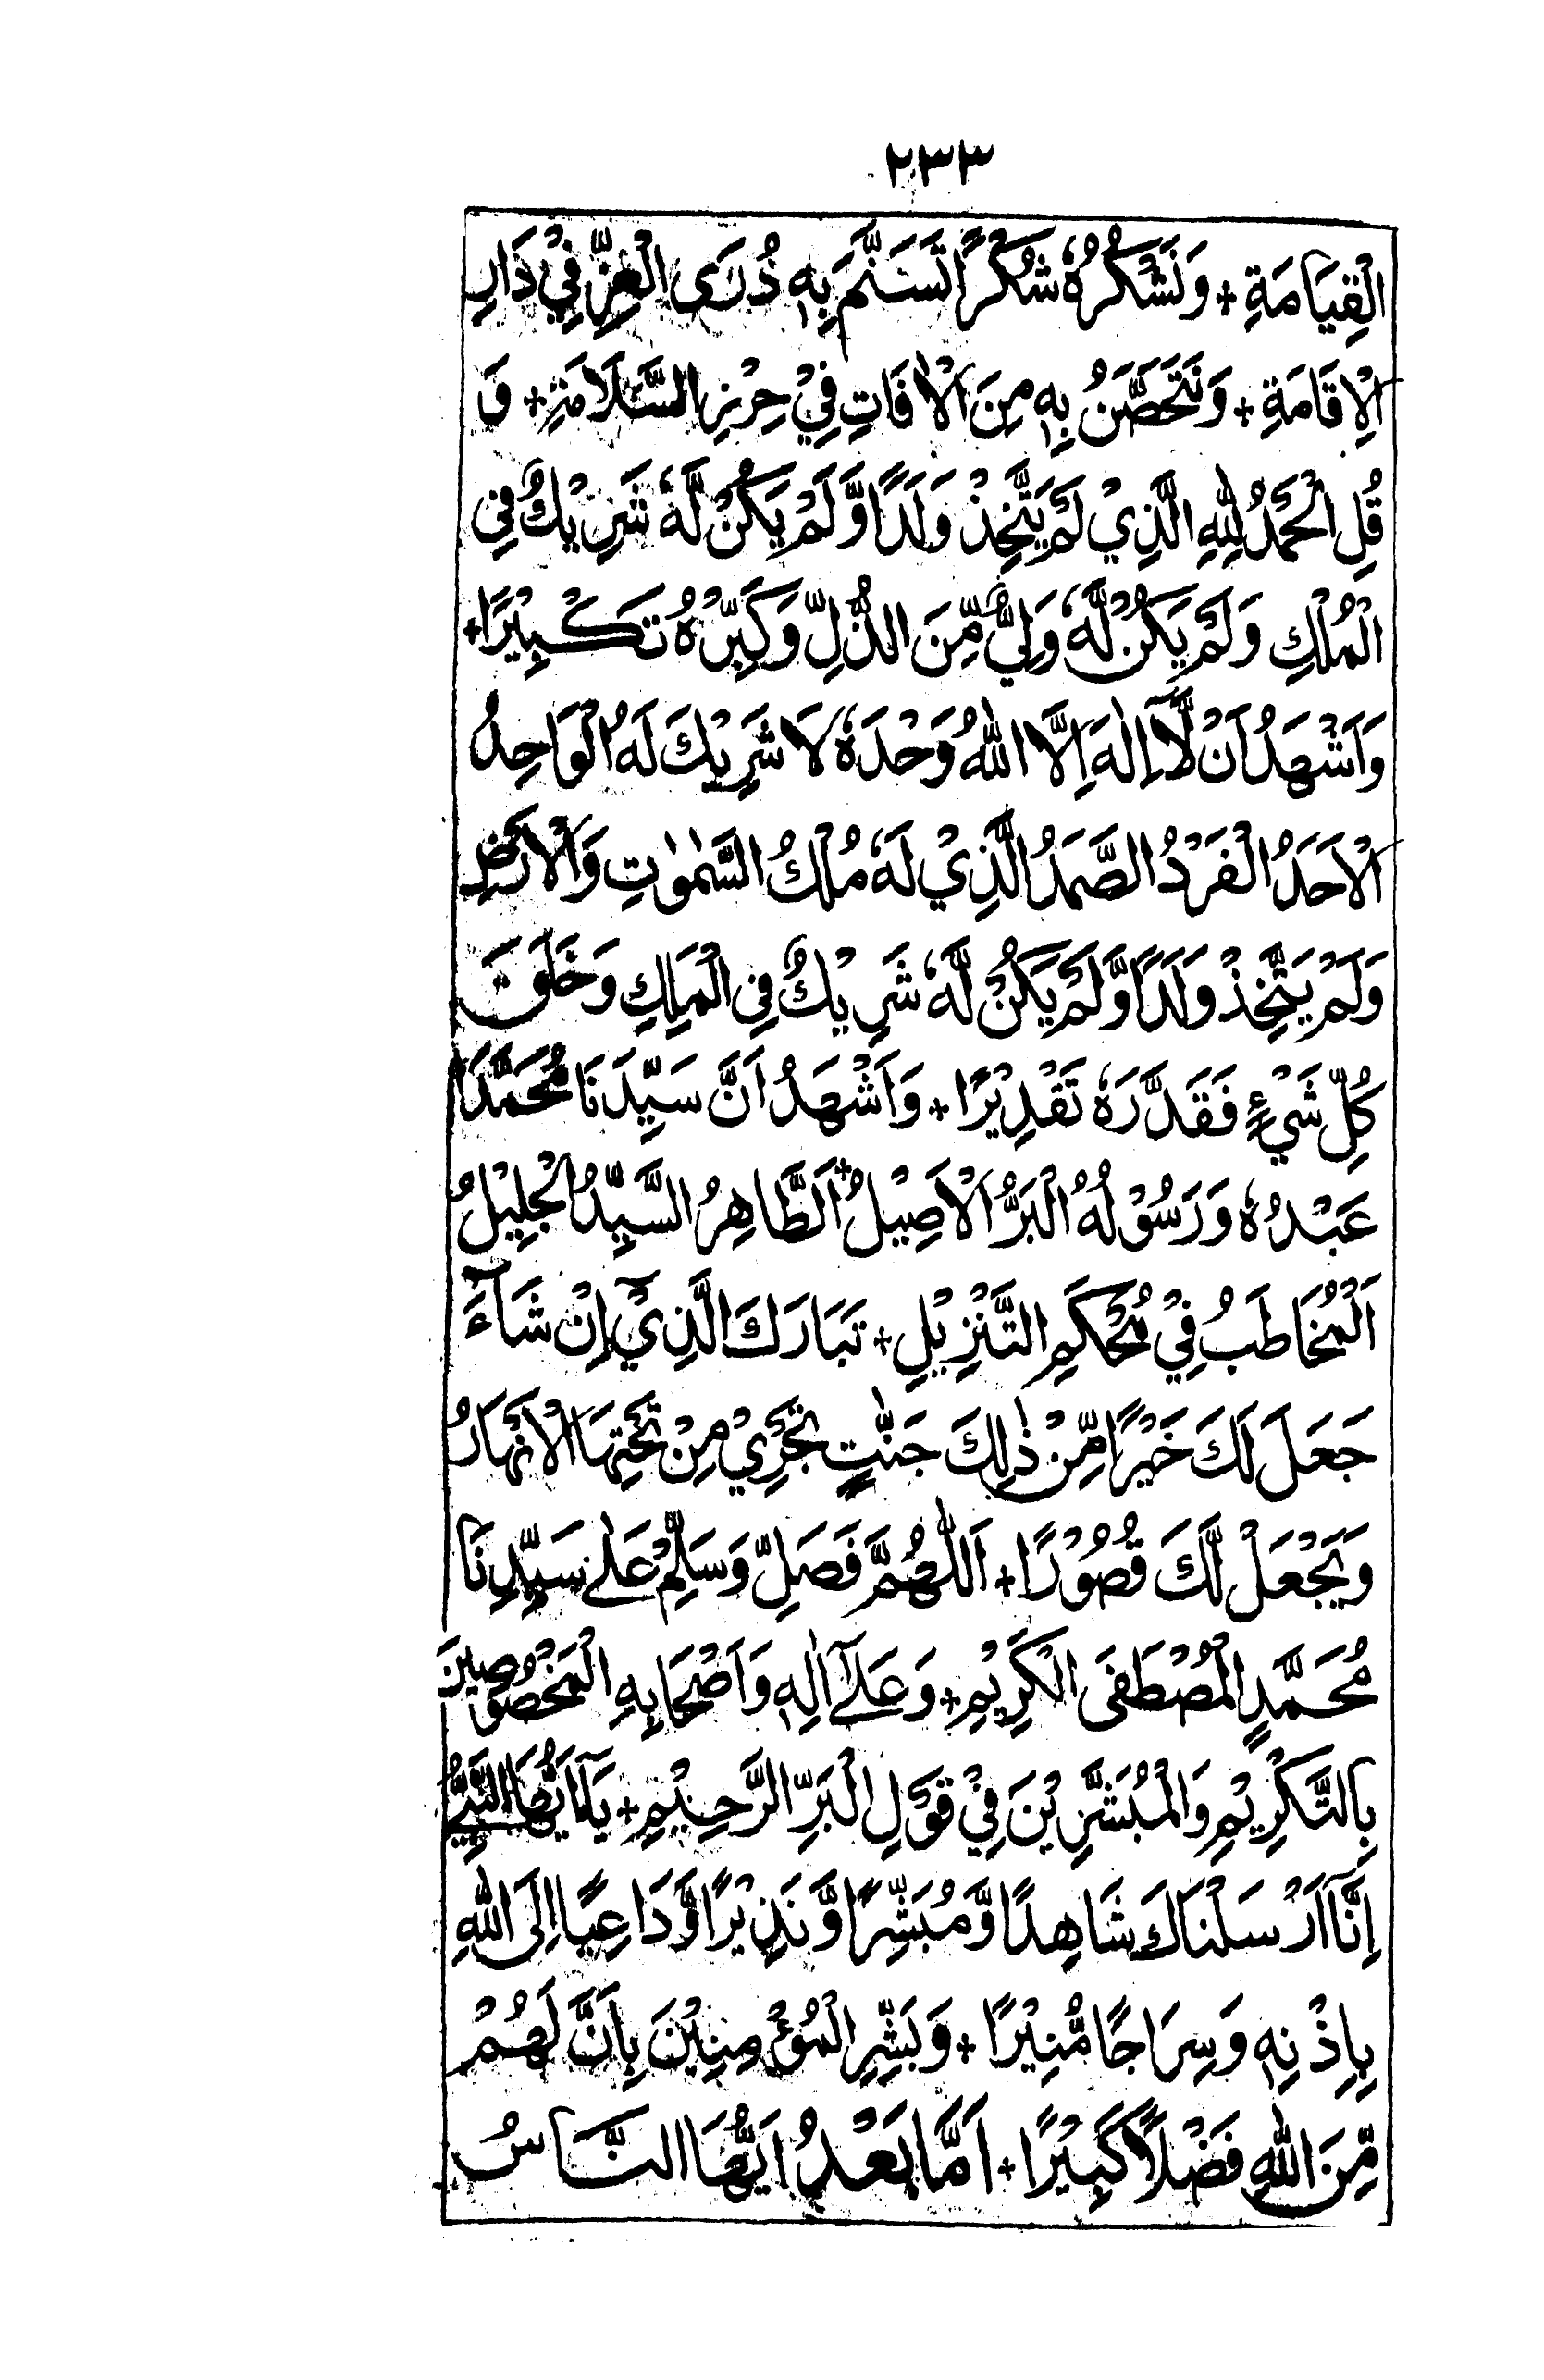 ٢٣٣
الْقِيَامَةِ + وَنَشْكُرُهٗ شُكْرًا نَتَسَنَّمَ بِهٖ ذُرَى الْعِزِّ فِيْ دَارِ
الْاِقَامَةِ + وَنَتَحَصَّنُ بِهٖ مِنَ الْاٰفَاتِ فِيْ حِرْزِ السَّلَامَةِ + وَ
قُلِ الْحَمْدُ لِلّٰهِ الَّذِيْ لَمْ يَتَّخِذْ وَلَدًا وَّلَمْ يَكُنْ لَّهٗ شَرِيْكٌ فِي
الْمُلْكِ وَلَمْ يَكُنْ لَّهٗ وَلِيٌّ مِّنَ الذُّلِّ وَكَبِّرْهُ تَكْبِيْرًا +
وَاَشْهَدُ اَنْ لَّآ اِلٰهَ اِلَّا اللّٰهُ وَحْدَهٗ لَا شَرِيْكَ لَهُ الْوَاحِدُ
الْاَحَدُ الْفَرْدُ الصَّمَدُ الَّذِيْ لَهٗ مُلْكُ السَّمٰوٰتِ وَالْاَرْضِ
وَلَمْ يَتَّخِذْ وَلَدًا وَّلَمْ يَكُنْ لَّهٗ شَرِيْكٌ فِي الْمُلْكِ وَخَلَقَ
كُلَّ شَيْءٍ فَقَدَّرَهٗ تَقْدِيْرًا + وَاَشْهَدُ اَنَّ سَيِّدَنَا مُحَمَّدًا
عَبْدُهٗ وَرَسُوْلُهُ الْبَرُّ الْاَصِيْلُ + اَلطَّاهِرُ السَّيِّدُ الْجَلِيْلُ
اَلْمُخَاطَبُ فِيْ مُحْكَمِ التَّنْزِيْلِ + تَبَارَكَ الَّذِيْٓ اِنْ شَآءَ
جَعَلَ لَكَ خَيْرًا مِّنْ ذٰلِكَ جَنّٰتٍ تَجْرِيْ مِنْ تَحْتِهَا الْاَنْهَارُ
وَيَجْعَلْ لَّكَ قُصُوْرًا + اَللّٰهُمَّ فَصَلِّ وَسَلِّمْ عَلٰى سَيِّدِنَا
مُحَمَّدٍ الْمُصْطَفَى الْكَرِيْمِ + وَعَلٰٓى اٰلِهٖ وَاَصْحَابِهِ الْمَخْصُوْصِيْنَ
بِالتَّكْرِيْمِ وَالْمُبَشَّرِيْنَ فِيْ قَوْلِ الْبَرِّ الرَّحِيْمِ + يَآ اَيُّهَا النَّبِيُّ
اِنَّآ اَرْسَلْنَاكَ شَاهِدًا وَّمُبَشِّرًا وَّنَذِيْرًا وَّدَاعِيًا اِلَى اللّٰهِ
بِاِذْنِهٖ وَسِرَاجًا مُّنِيْرًا + وَبَشِّرِ الْمُؤْمِنِيْنَ بِاَنَّ لَهُمْ
مِّنَ اللّٰهِ فَضْلًا كَبِيْرًا + اَمَّا بَعْدُ اَيُّهَا النَّاسُ